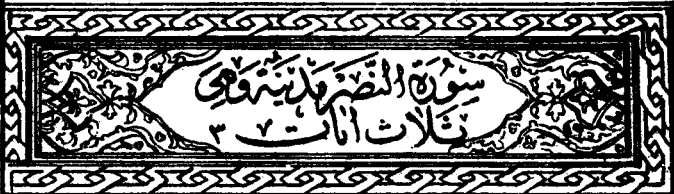 سُورَةُ النَّصْرِ مَدَنِيَّةٌ وَهِيَ
ثَلَاثُ آيَاتٍ ٣